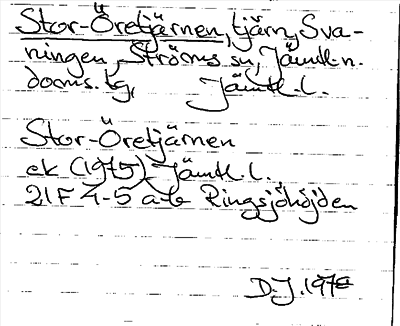 Stor-Öretjärnen, tjärn, Sva-
ningen, Ströms sn, Jämtl. n.
doms. tg, Jämtl. l.
Stor-Öretjärnen
ek (1975) Jämtl. l.
21F 4-5 a-b Ringsjöhöjden
D.J.